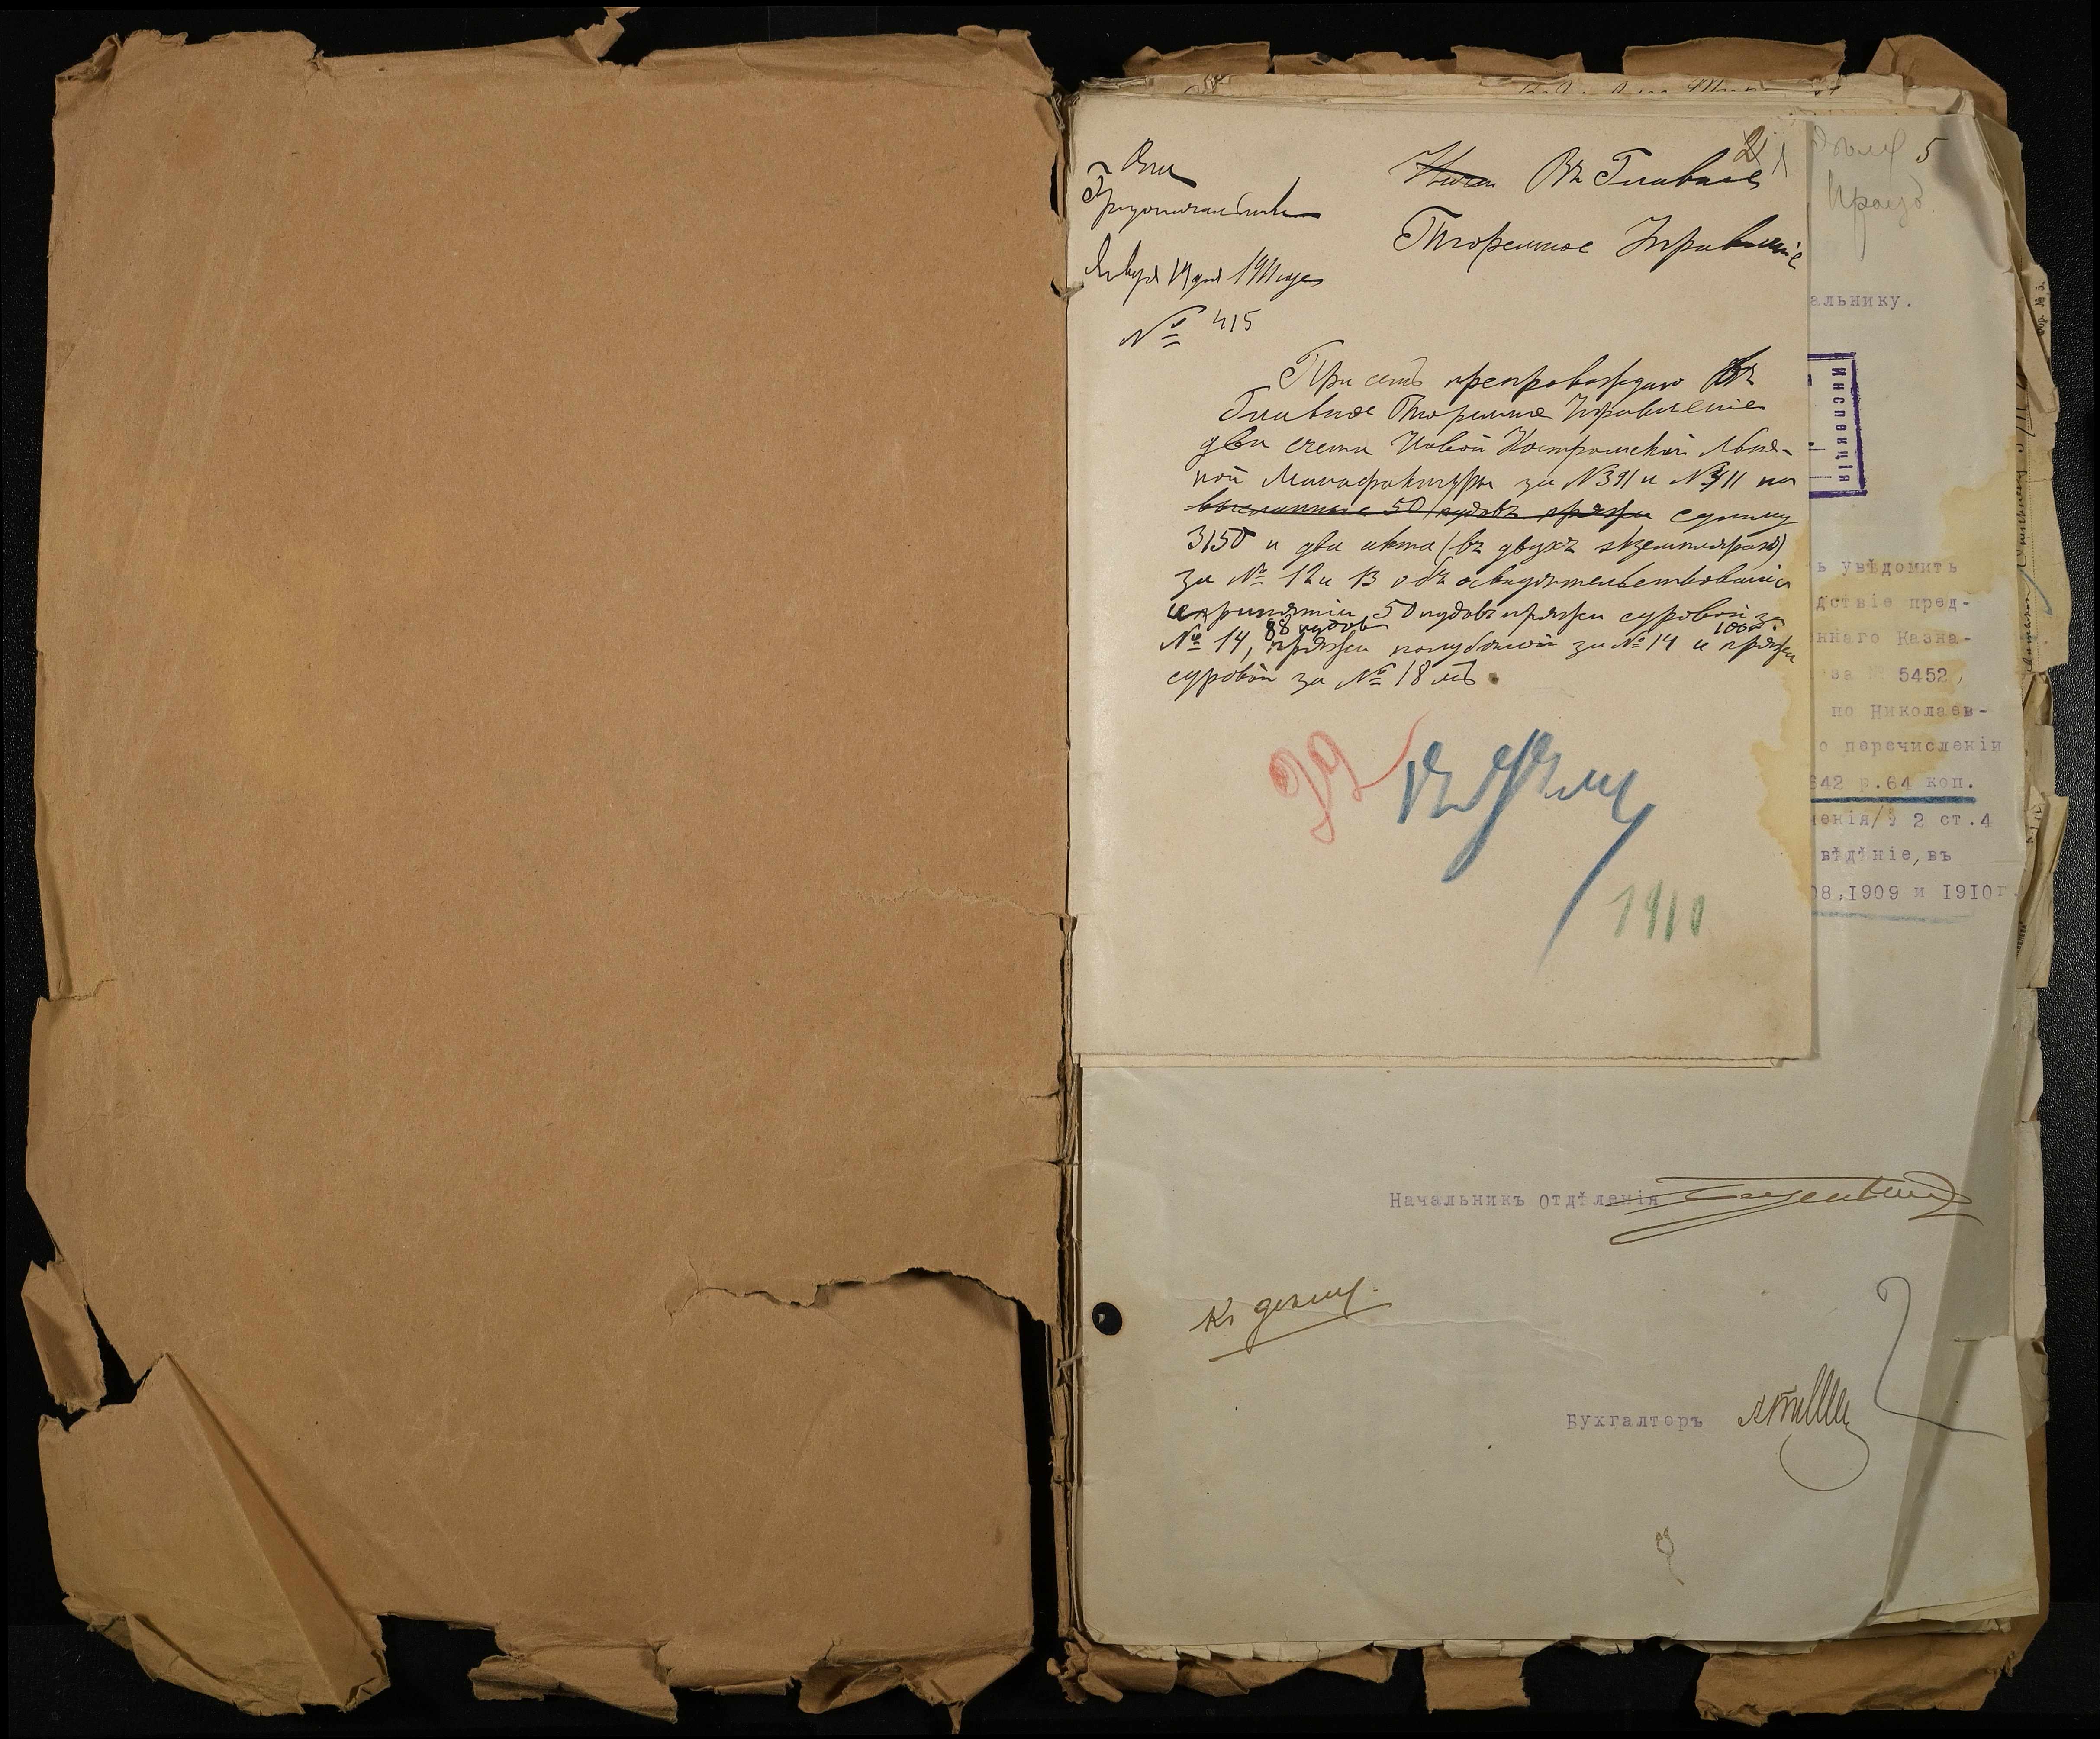 Отъ
Градоначальника
Января 19 дня 1911 года
№ 415
21
Въ Главное
Тюремное Управленіе
При семъ препровождаю въ
Главное Тюремное Управленіе
два счета Новой Костромской Льня-
ной Мануфактуры за №391 и №411 на
высланные 50 пудовъ пряжи сумму
3150 и два акта (въ двухъ экземплярахъ)
за № 12 и 13 объ освидѣтельствованіи
и принятіи 50 пудовъ пряжи суровой за
№ 14, 88 пудовъ пряжи полубѣлой за № 14 и 100 пряжи
суровой за № 18 мъ.
Къ дѣлу
1910
5
альнику.
Инспекція
ь увѣдомить
дствіе пред-
ннаго Казна-
за 5452,
по Николаев-
о перечисленіи
642 р.64 коп.
ченія/§ 2 ст.4
вѣдѣніе,въ
08,1909 и 1910г
Начальникъ Отдѣленія
Къ дѣлу.
Бухгалтеръ